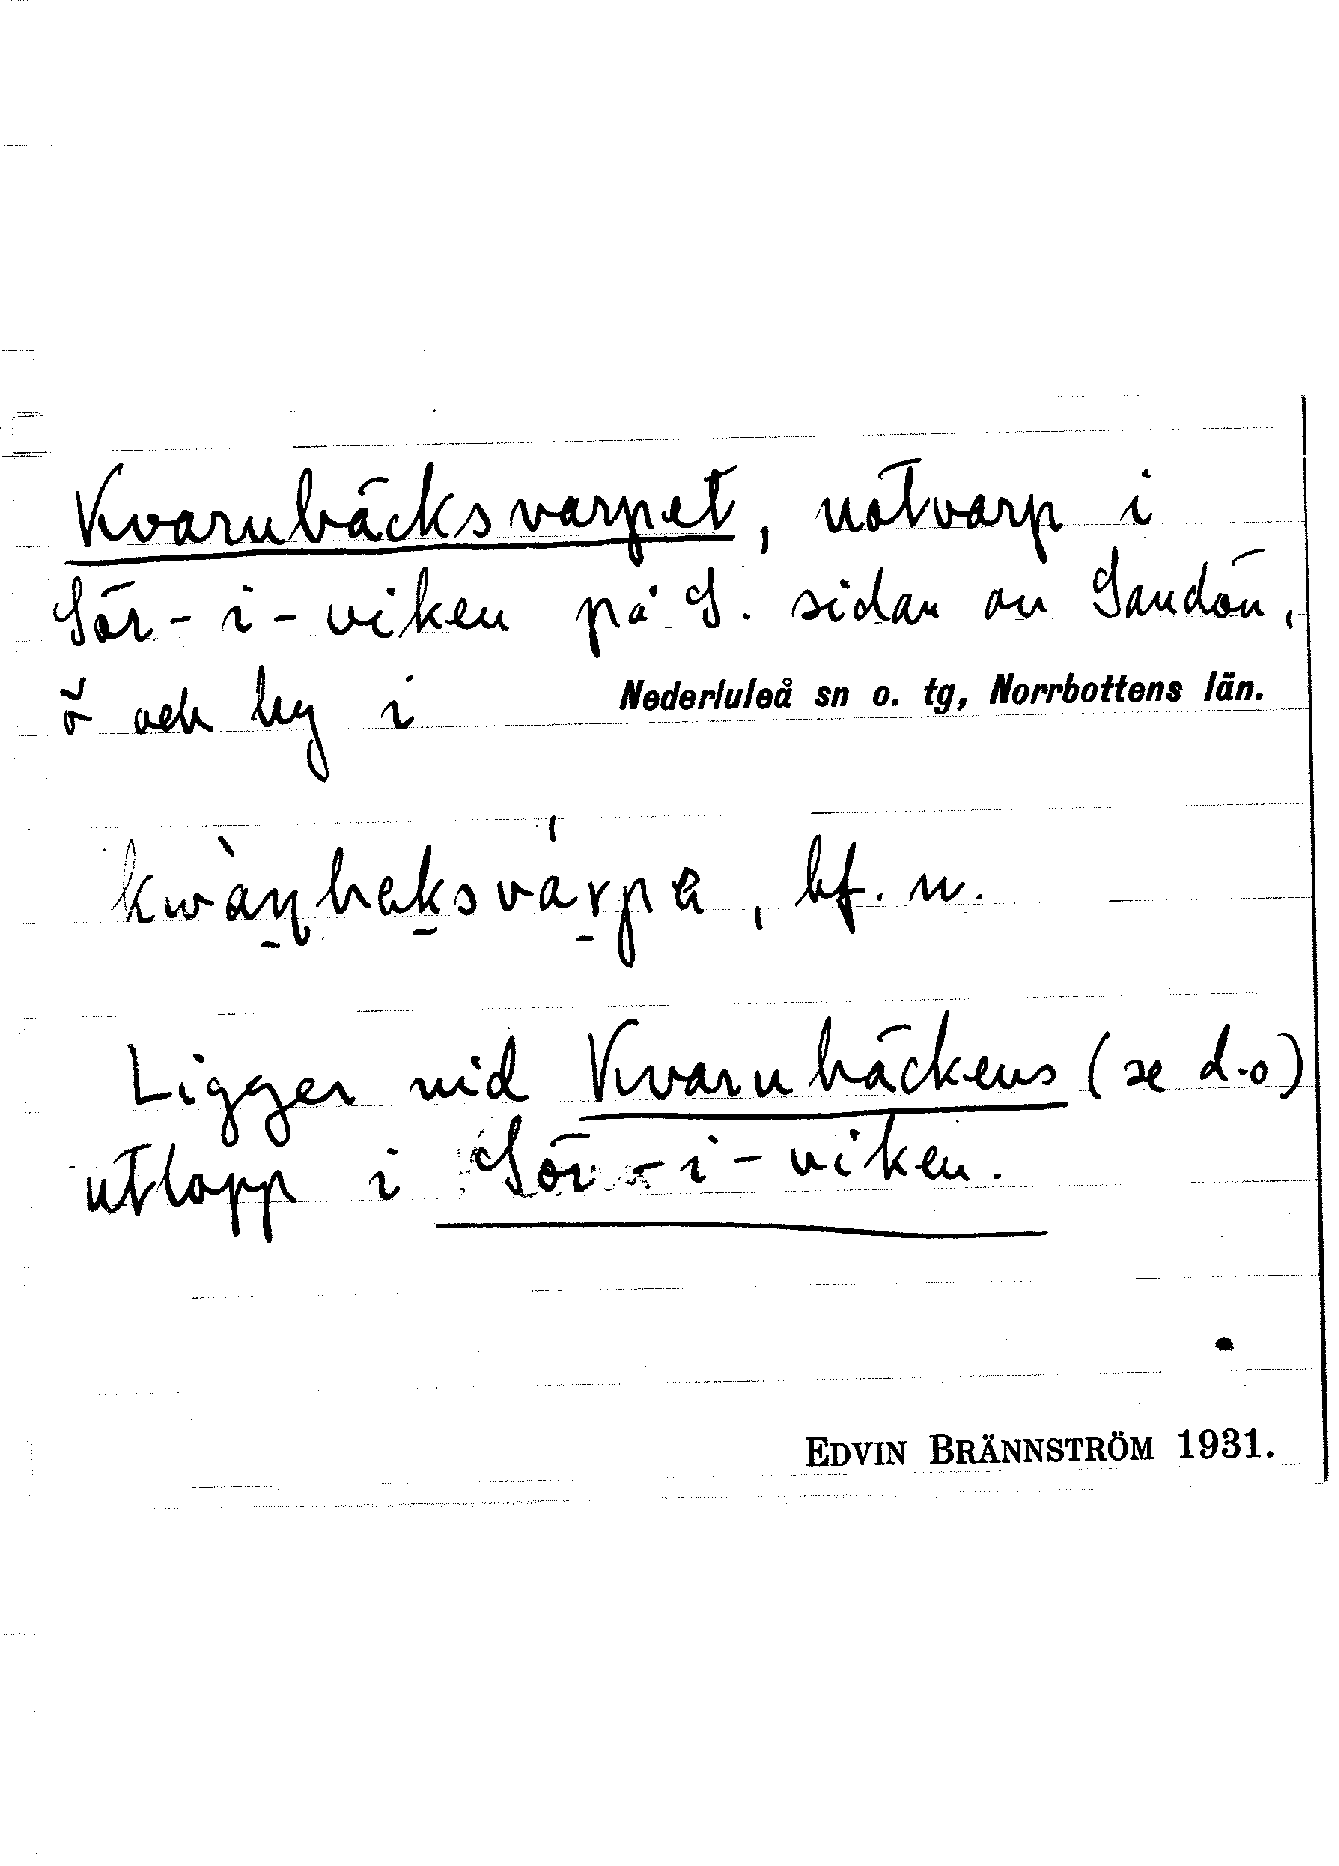 Kvarnbäcksvarpet, notvarp i
Sör-i-viken på S. sidan av Sandön,
ö och by i Nederluleå sn o. tg, Norrbottens län.
kwàṇbeksvárpe, bf. n.
Ligger vid Kvarnbäckens (se d.o)
utlopp i Sör-i-viken.
EDVIN BRÄNNSTRÖM 1931.